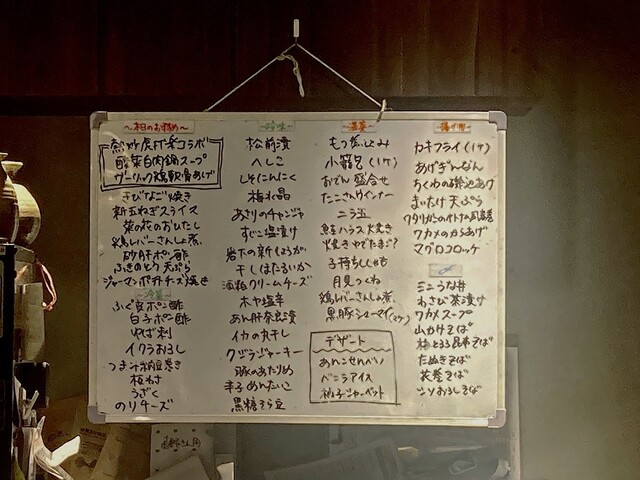 本日のお奨め
コラボ
酸菜白肉鍋スープ
ガーリック鶏軟骨あげ
きびなご焼き
新玉ねぎスライス
菜の花のおひたし
鶏レバーさんしょ煮
砂肝ポン酢
ふきのとう天ぷら
ジャーマンポテトチーズ焼き
冷菜
ふぐ皮ポン酢
白子ポン酢
ゆば刺
イクラおろし
板わさ
うざく
のりチーズ
珍味
松前漬
へしこ
しそにんにく
梅水晶
あさりのチャンジャ
すじこ塩漬け
岩下の新しょうが
干しほたるいか
酒粕クリームチーズ
ホヤ塩辛
あん肝奈良漬
イカの丸干し
クジラジャーキー
豚のみたりめ
辛子めんたいこ
黒糖そら豆
温菜
もつ煮込み
小籠包(1ケ)
おでん盛合せ
たこさんウインナー
ニラ玉
鮭ハラス焼き
焼きゆでたまご?
子持ちししゃも
月見つくね
鶏レバーさんしょ煮
黒豚シューマイ
デザート
あんこせんべい
バニラアイス
柚子シャーベット
揚げ物
カキフライ(1ケ)
あげぎんなん
ちくわの磯辺あげ
まいたけ天ぷら
ワカメのかきあげ
マグロコロッケ
〆
ミニうな丼
わさび茶漬け
ワカメスープ
山かけそば
梅とろろ昆布そば
たぬきそば
花巻そば
シソおろしそば